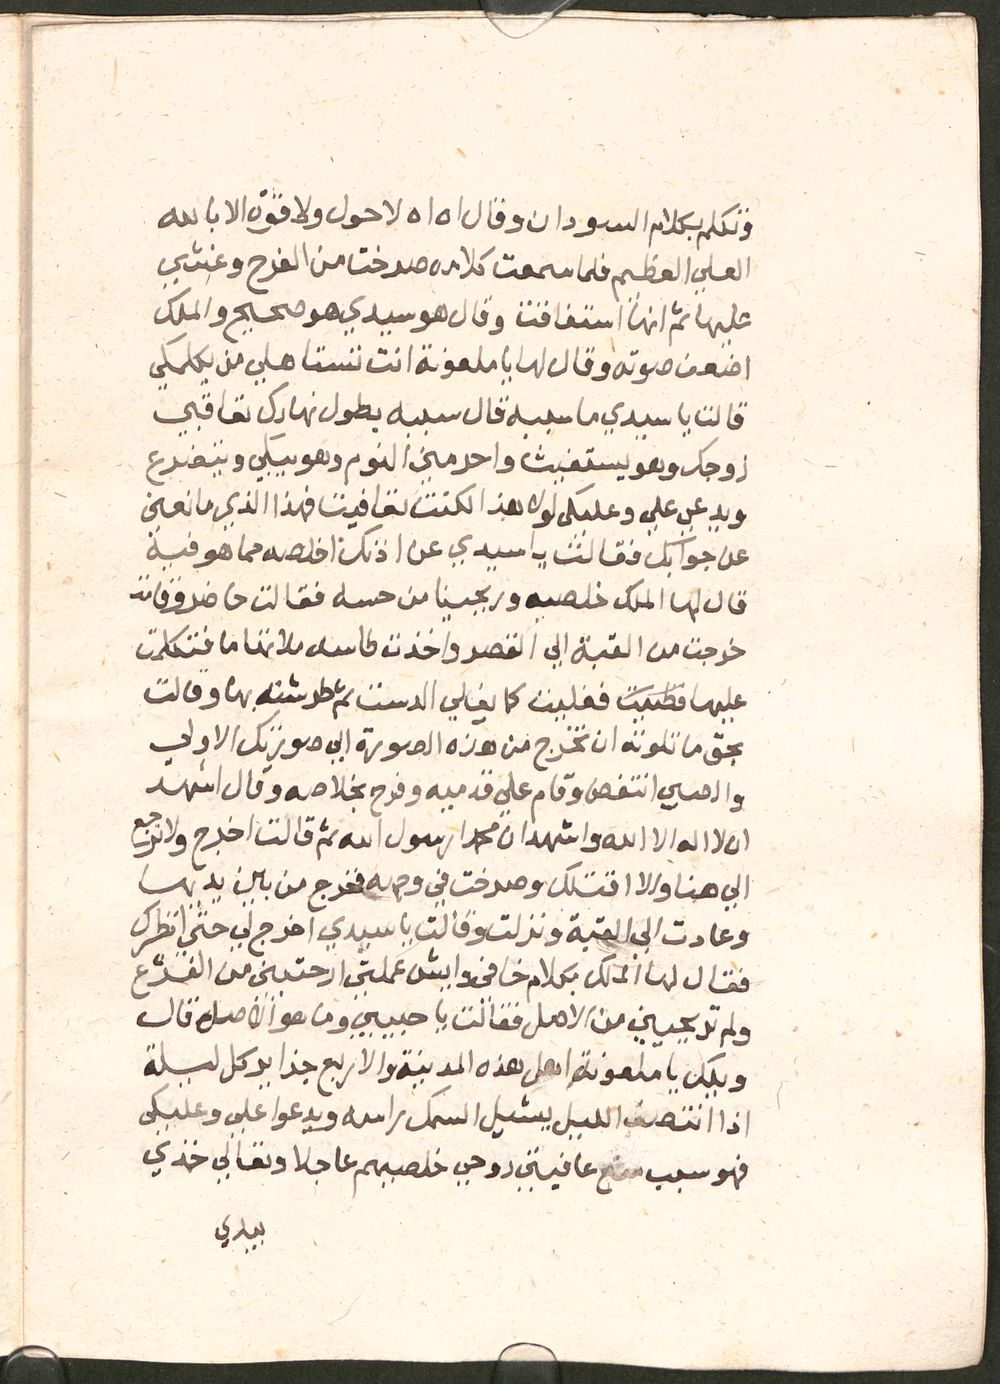 وتكلم بكلام السودان وقال اه اه لا حول ولا قوة الا بالله
العلي العظيم فلما سمعت كلامه صرخت من الفرح وغشي
عليها ثم انها استفاقت وقال هو سيدي هو صحيح والملك
اضعف صوته وقال لها يا ملعونة انت تستاهلي من يكلمكي
قالت يا سيدي ما سببه قال سببه بطول نهارك تعاقبي
زوجك وهو يستغيث واحرمني النوم وهو يبكي ويتضرع
ويدعي علي وعليكي لولا هذا لكنت تعافيت فهذا الذي مانعني
عن جوابك فقالت يا سيدي عن اذنك اخلصه مما هو فيه
قال لها الملك خلصيه وريحينا من حسه فقالت حاضر وقامت
خرجت من القبة الي القصر واخذت طاسه ملانه ما فتكلمت
عليها فغليت كما يغلي الدست ثم طرشته بها وقالت
بحق ما تلوته ان تخرج من هذه الصورة الي صورتك الاولي
والصبي انتفض وقام علي قدميه وفرح بخلاصه وقال اشهد
ان لا اله الا الله واشهد ان محمدا رسول الله ثم قالت اخرج ولا ترجع
الي هنا والا اقتلك وصرخت في وجهه فخرج من بين يديها
وعادت الي القبة ونزلت وقالت يا سيدي اخرج لي حتي انظرك
فقال لها الملك بكلام خافي وايش عملتي ارحتيني من الفرع
ولم تريحيني من الاصل فقالت يا حبيبي وما هو الاصل قال
ويلك يا ملعونة اهل هذه المدينة والاربع جزاير كل ليلة
اذا انتصف الليل يشيل السمك راسه ويدعوا علي وعليكي
فهو سبب منع عافيتي روحي خلصيهم عاجلا وتعالي خذي
بيدي